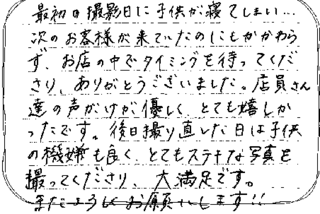 最初の撮影日に子供が寝てしまい…
次のお客様が来ていたのにもかかわら
ず、お店の中でタイミングを待ってくだ
さり、ありがとうございました。店員さん
達の声がけが優しく、とても嬉しか
ったです。後日撮り直した日は子供
の機嫌も良く、とてもステキな写真を
撮ってくださり、大満足です。
またよろしくお願いします!!